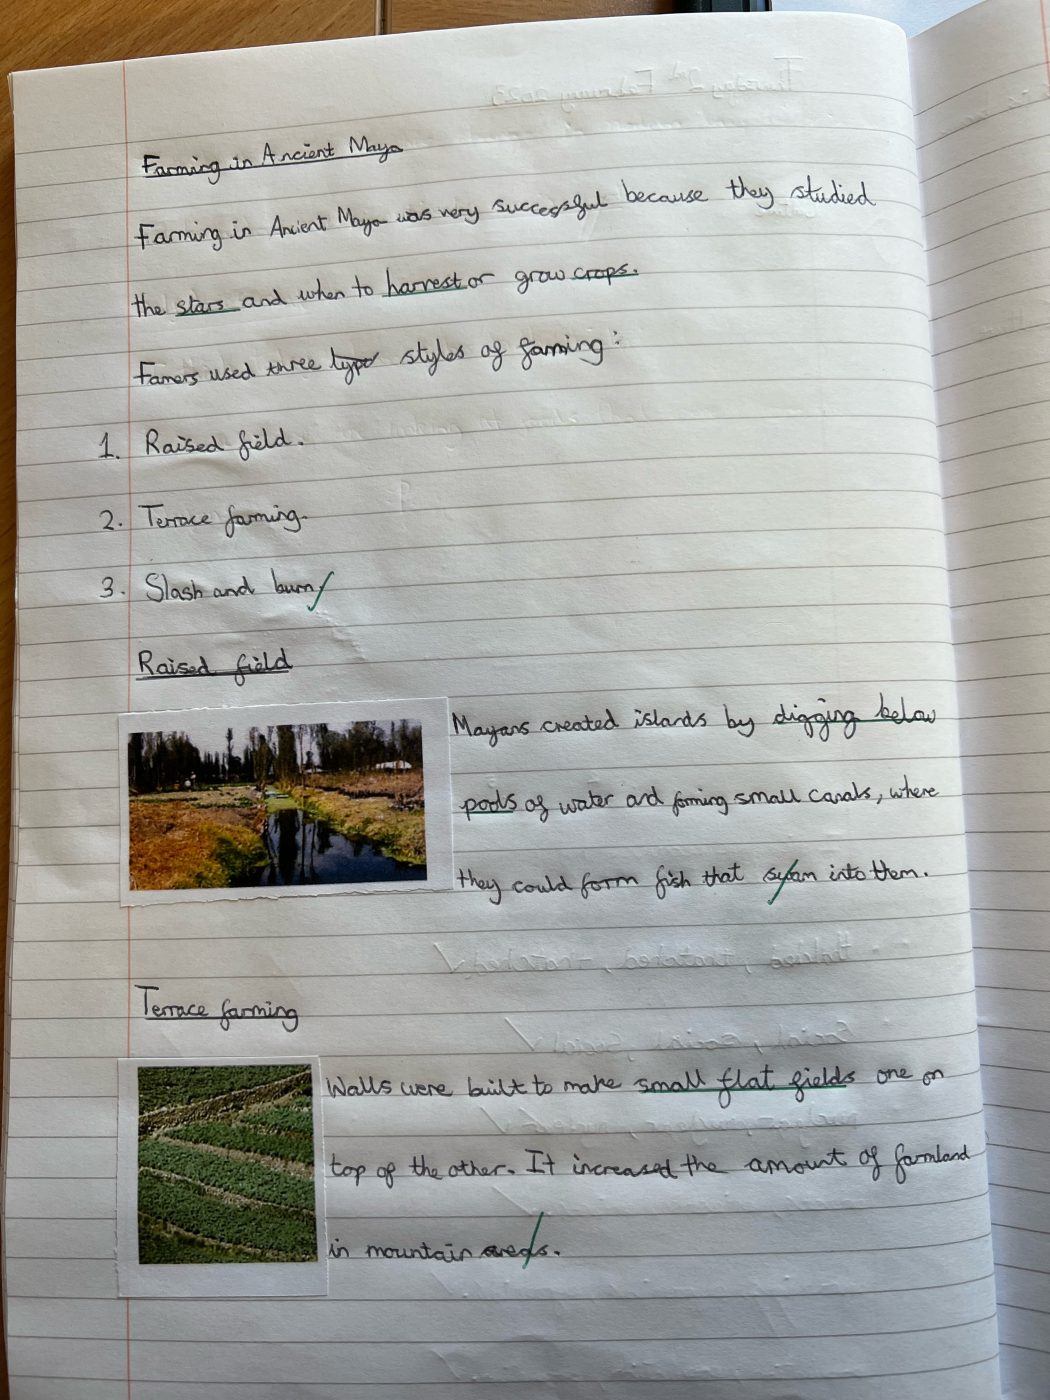 Farming in Ancient Maya
Farming in Ancient Maya was very successful because they studied
the stars and when to harvest or grow crops.
Famers used three typo styles of farming:
1. Raised field.
2. Terrace farming.
3. Slash and burn
Raised field
Mayans created islands by digging below
pools of water and forming small canals, where
they could form fish that swam into them.
Terrace farming
Walls were built to make small flat fields one on
top of the other. It increased the amount of farmland
in mountain areas.